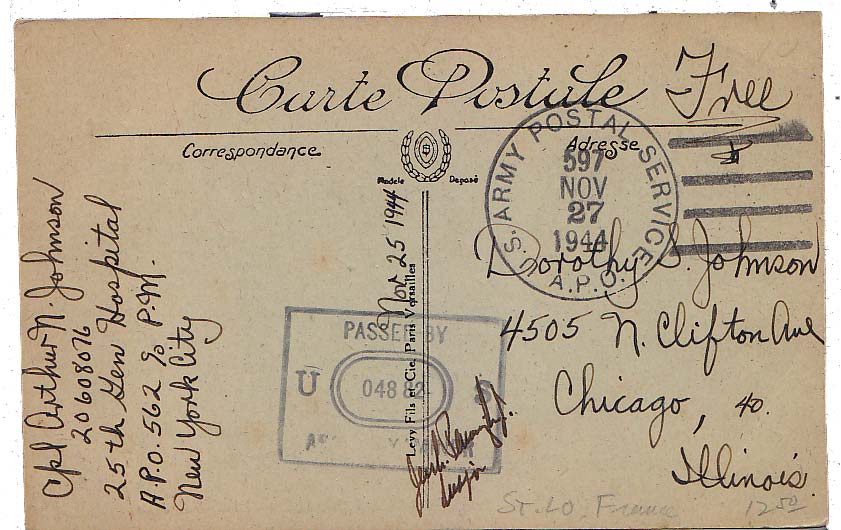 Carte Postale
Free
Correspondance
Adresse
Modèle Déposé
U.S. ARMY POSTAL SERVICE
597
NOV
27
1944
A.P.O.
Cpl Arthur N. Johnson
20608076
25th Gen Hospital
A.P.O. 562 c/o P.M.
New York City
Nov 25 1944
Levy Fils et Cie, Paris Versailles
PASSED BY
U S
04882
Dorothy S. Johnson
4505 N. Clifton Ave
Chicago, 40.
Illinois
St. Lo, France
12.50